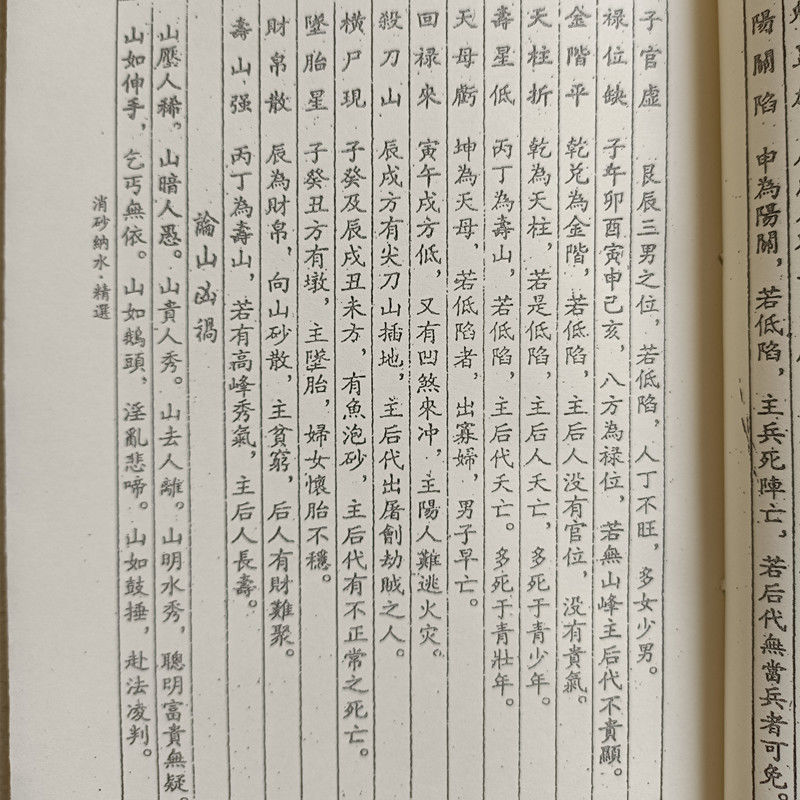 陽關陷　申為陽關，若低陷，主兵死陣亡，若后代無當兵者可免。
子官虛　艮辰三男之位，若低陷，人丁不旺，多女少男。
禄位缺　子午卯酉寅申己亥，八方為禄位，若無山峰主后代不貴顯。
金階平　乾兑為金階，若低陷，主后人没有官位，没有貴氣。
天柱折　乾為天柱，若是低陷，主后人夭亡，多死于青少年。
壽星低　丙丁為壽山，若低陷，主后代夭亡。多死于青壯年。
天母虧　坤為天母，若低陷者，出寡婦，男子早亡。
回禄來　寅午戌方低，又有凹煞來冲，主陽人難逃火灾。
殺刀山　辰戌方有尖刀山插地，主后代出屠劊劫賊之人。
橫尸現　子癸及辰戌丑未方，有魚泡砂，主后代有不正常之死亡。
墜胎星　子癸丑方有墩，主墜胎，婦女懷胎不穩。
財帛散　辰為財帛，向山砂散，主貧窮，后人有財難聚。
壽山强　丙丁為壽山，若有高峰秀氣，主后人長壽。
論山凶禍
山壓人稀。山暗人愚。山貴人秀。山去人離。山明水秀，聰明富貴無疑。
山如伸手，乞丐無依。山如鵝頭，淫亂悲啼。山如鼓捶，赴法凌判。
消砂納水·精選